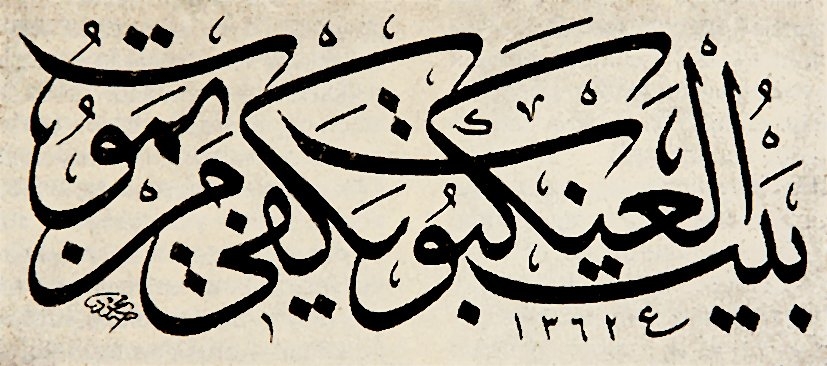 بَيْتُ الْعَنْكَبُوتِ يَكْفِي مَنْ يَمُوتُ
١٣٦٢